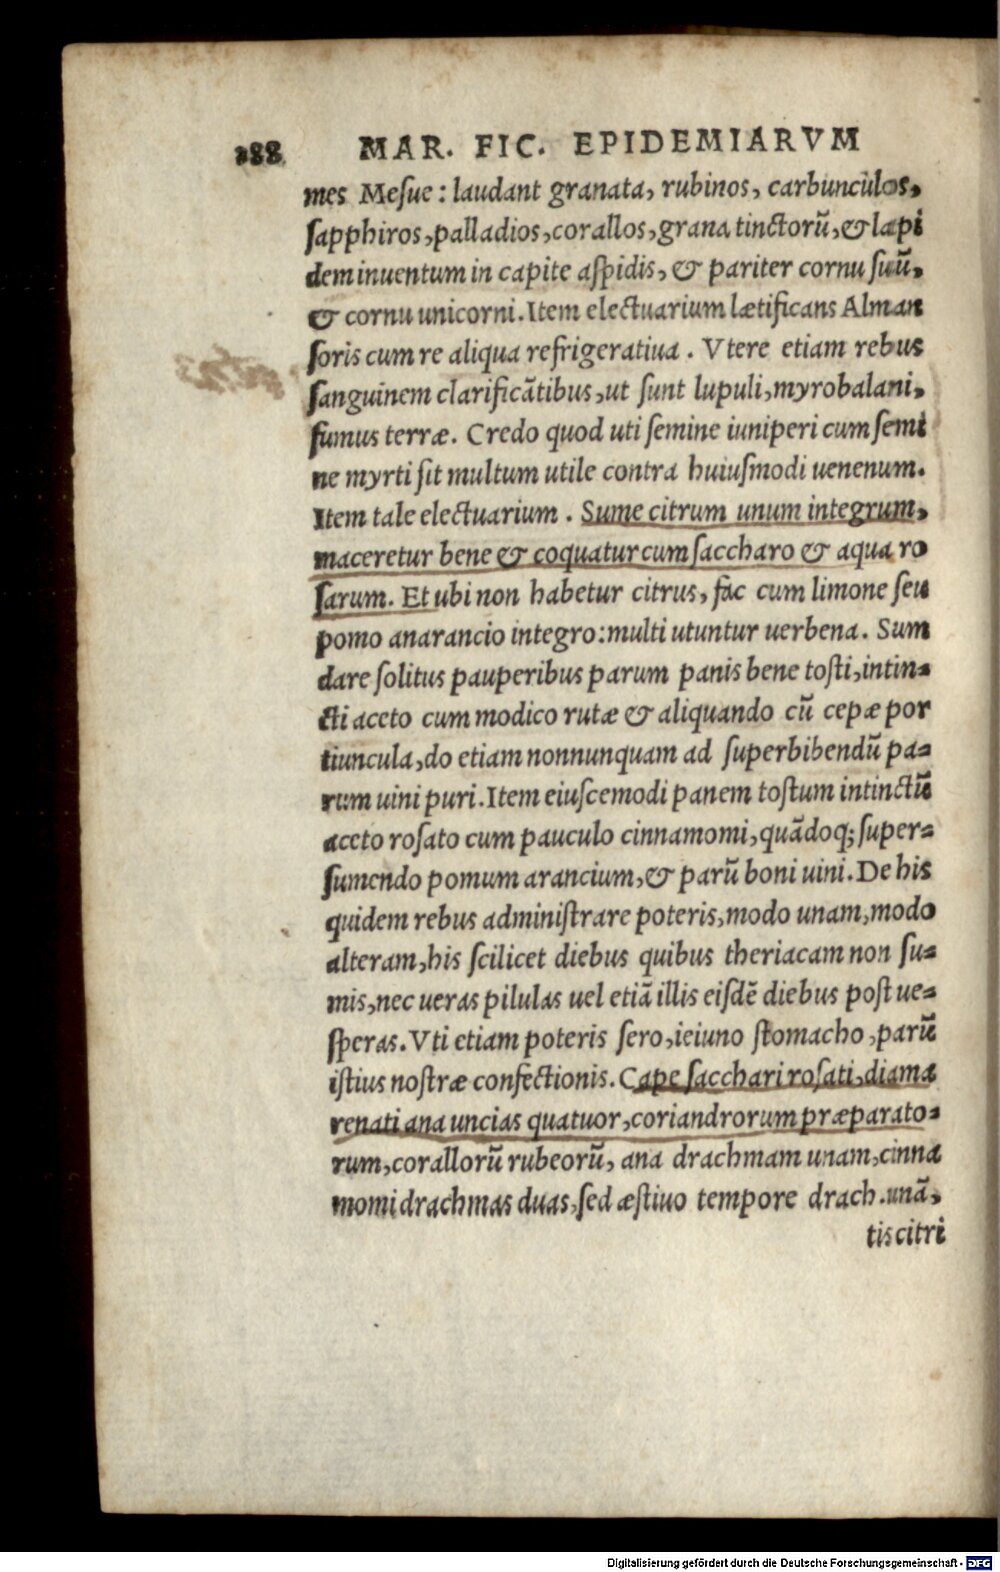 288 MAR. FIC. EPIDEMIARVM
mes Meſue : laudant granata, rubinos, carbunculos,
ſapphiros, palladios, corallos, grana tinctorū, & lapi
dem inuentum in capite aſpidis, & pariter cornu ſuū,
& cornu unicorni. Item electuarium lætificans Alman
ſoris cum re aliqua refrigeratiua . Vtere etiam rebus
ſanguinem clarificātibus, ut ſunt lupuli, myrobalani,
fumus terræ. Credo quod uti ſemine iuniperi cum ſemi
ne myrti ſit multum utile contra huiuſmodi uenenum.
Item tale electuarium . Sume citrum unum integrum,
maceretur bene & coquatur cum ſaccharo & aqua ro
ſarum. Et ubi non habetur citrus, fac cum limone ſeu
pomo anarancio integro: multi utuntur uerbena. Sum
dare ſolitus pauperibus parum panis bene toſti, intin=
cti aceto cum modico rutæ & aliquando cū cepæ por
tiuncula, do etiam nonnunquam ad ſuperbibendū pa=
rum uini puri. Item eiuſcemodi panem toſtum intinctū
aceto roſato cum pauculo cinnamomi, quādoq; ſuper=
ſumendo pomum arancium, & parū boni uini. De his
quidem rebus adminiſtrare poteris, modo unam, modo
alteram, his ſcilicet diebus quibus theriacam non ſu=
mis, nec ueras pilulas uel etiā illis eiſdē diebus poſt ue=
ſperas. Vti etiam poteris ſero, ieiuno ſtomacho, parū
iſtius noſtræ confectionis. Cape ſacchari roſati, diama
renati ana uncias quatuor, coriandrorum præparato=
rum, corallorū rubeorū, ana drachmam unam, cinna
momi drachmas duas, ſed æſtiuo tempore drach. unā,
tis citri
Digitalisierung gefördert durch die Deutsche Forschungsgemeinschaft - DFG